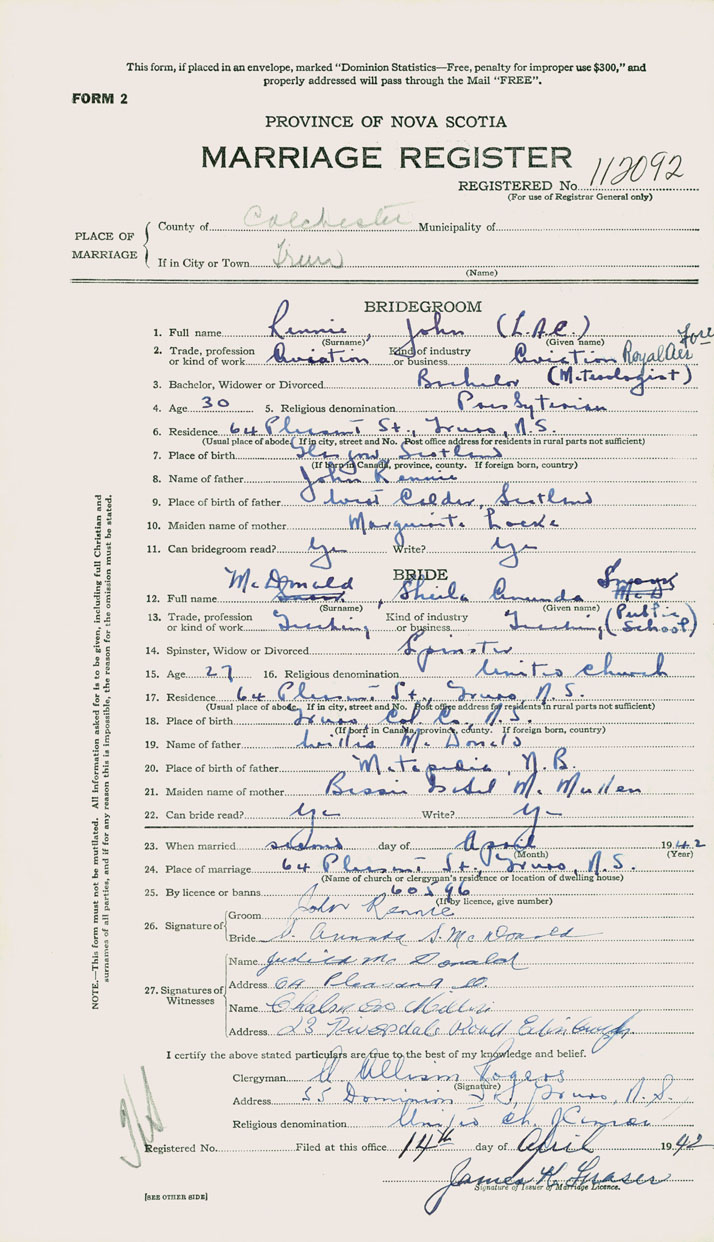 This form, if placed in an envelope, marked “Dominion Statistics—Free, penalty for improper use $300,” and
properly addressed will pass through the Mail “FREE”.
FORM 2
PROVINCE OF NOVA SCOTIA
MARRIAGE REGISTER
REGISTERED No. 112092
(For use of Registrar General only)
PLACE OF MARRIAGE
County of Colchester Municipality of
If in City or Town Truro
(Name)
BRIDEGROOM
1. Full name Rennie, John (L.A.C.)
(Surname) (Given name)
2. Trade, profession or kind of work Aviation Kind of industry or business Aviation Royal Air Force
(Meteologist)
3. Bachelor, Widower or Divorced Bachelor
4. Age 30 5. Religious denomination Presbyterian
6. Residence 64 Pleasant St., Truro, N.S.
(Usual place of abode. If in city, street and No. Post office address for residents in rural parts not sufficient)
7. Place of birth Glasgow, Scotland
(If born in Canada, province, county. If foreign born, country)
8. Name of father John Rennie
9. Place of birth of father West Calder, Scotland
10. Maiden name of mother Marguerite Locke
11. Can bridegroom read? Yes Write? Yes
BRIDE
12. Full name McDonald, Sheila Amunda
(Surname) (Given name)
13. Trade, profession or kind of work Teaching Kind of industry or business Teaching (Public School)
14. Spinster, Widow or Divorced Spinster
15. Age 27 16. Religious denomination United Church
17. Residence 64 Pleasant St., Truro, N.S.
(Usual place of abode. If in city, street and No. Post office address for residents in rural parts not sufficient)
18. Place of birth Truro Col. Co., N.S.
(If born in Canada, province, county. If foreign born, country)
19. Name of father Willis McDonald
20. Place of birth of father Metapedia, N.B.
21. Maiden name of mother Bessie Isabel McMullen
22. Can bride read? Yes Write? Yes
23. When married second day of April 1942
(Month) (Year)
24. Place of marriage 64 Pleasant St., Truro, N.S.
(Name of church or clergyman's residence or location of dwelling house)
25. By licence or banns 60596
(If by licence, give number)
26. Signature of
Groom John Rennie
Bride S. Amunda S. McDonald
27. Signatures of Witnesses
Name Judith McDonald
Address 64 Pleasant St.
Name
Address 23 Riversdale Road Edinburgh
I certify the above stated particulars are true to the best of my knowledge and belief.
Clergyman W Allison Rogers
(Signature)
Address 55 Dominion St., Truro, N.S.
Religious denomination United Ch. of Canada
Registered No. Filed at this office 14th day of April 1942
James K. Fraser
Signature of Issuer of Marriage Licence.
[SEE OTHER SIDE]
NOTE.—This form must not be mutilated. All information asked for is to be given, including full Christian and
surnames of all parties, and if for any reason this is impossible, the reason for the omission must be stated.